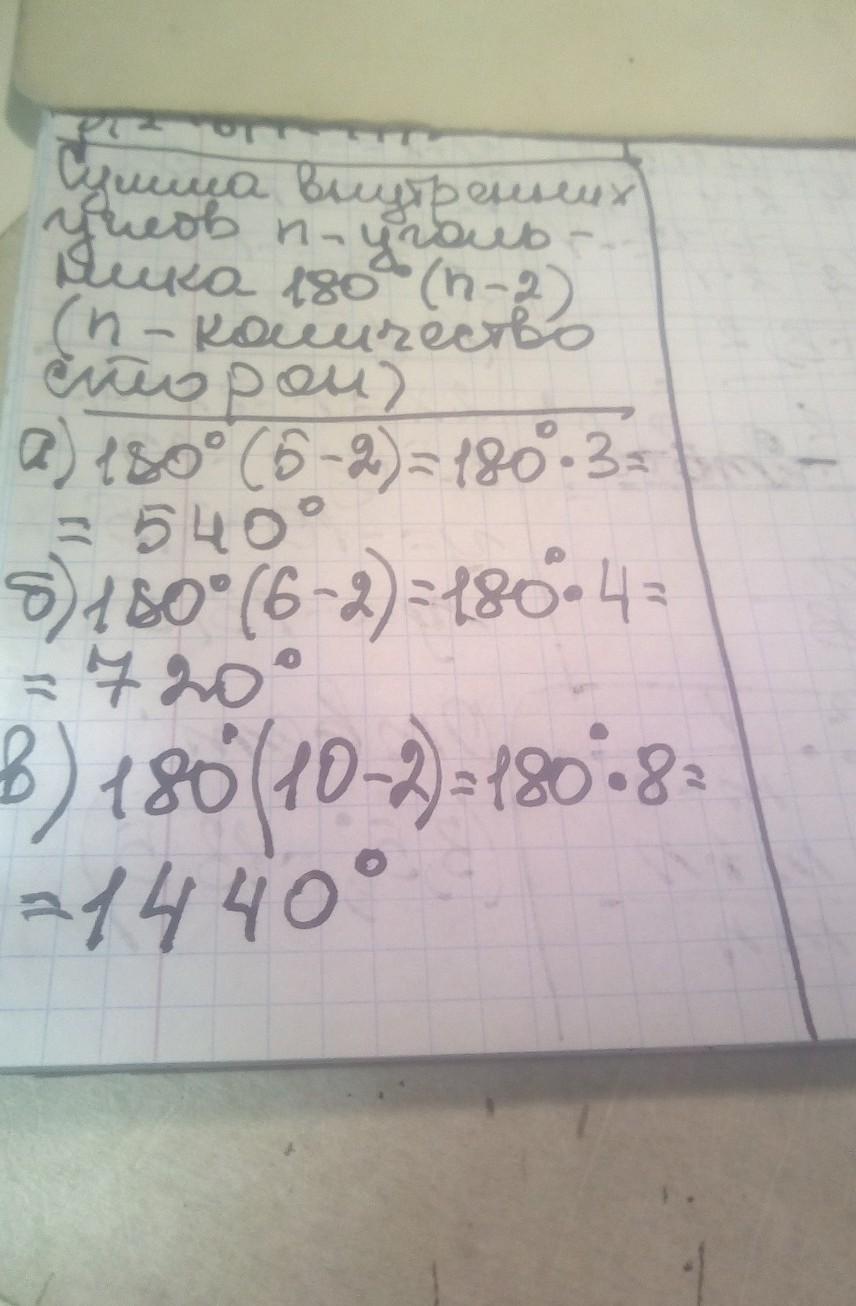 Сумма внутренних
углов n-уголь-
ника 180° (n-2)
(n - количество
сторон)
а) 180° (5-2) = 180° · 3 =
= 540°
б) 180° (6-2) = 180° · 4 =
= 720°
в) 180° (10-2) = 180° · 8 =
= 1440°